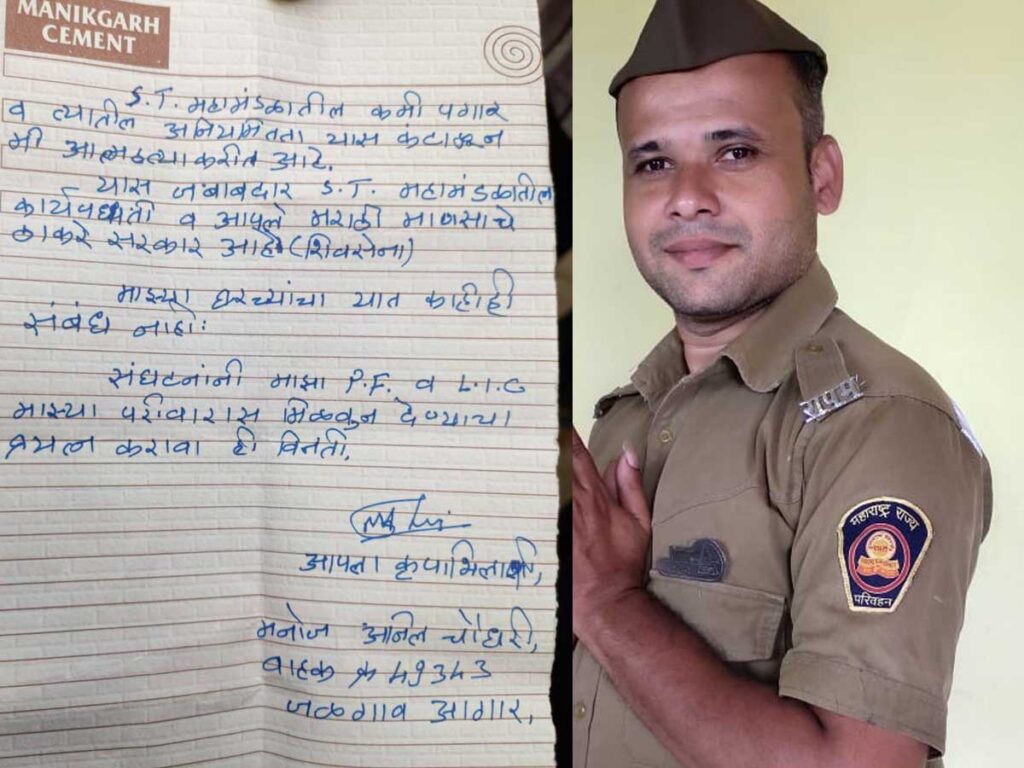 MANIKGARH
CEMENT
S.T. महामंडळातील कमी पगार
व त्यातील अनियमितता यास कंटाळून
मी आत्महत्या करीत आहे.
यास जबाबदार S.T. महामंडळातील
कार्यपध्दती व आपले मराठी माणसाचे
ठाकरे सरकार आहे (शिवसेना)
माझ्या घरच्यांचा यात काहीही
संबंध नाही.
संघटनांनी माझा P.F. व L.I.C
माझ्या परीवारास मिळवुन देण्याचा
प्रयत्न करावा ही विनंती.
आपला कृपाभिलाषी,
मनोज अनिल चौधरी,
वाहक क्र 49343
जळगाव आगार,
महाराष्ट्र राज्य
परिवहन